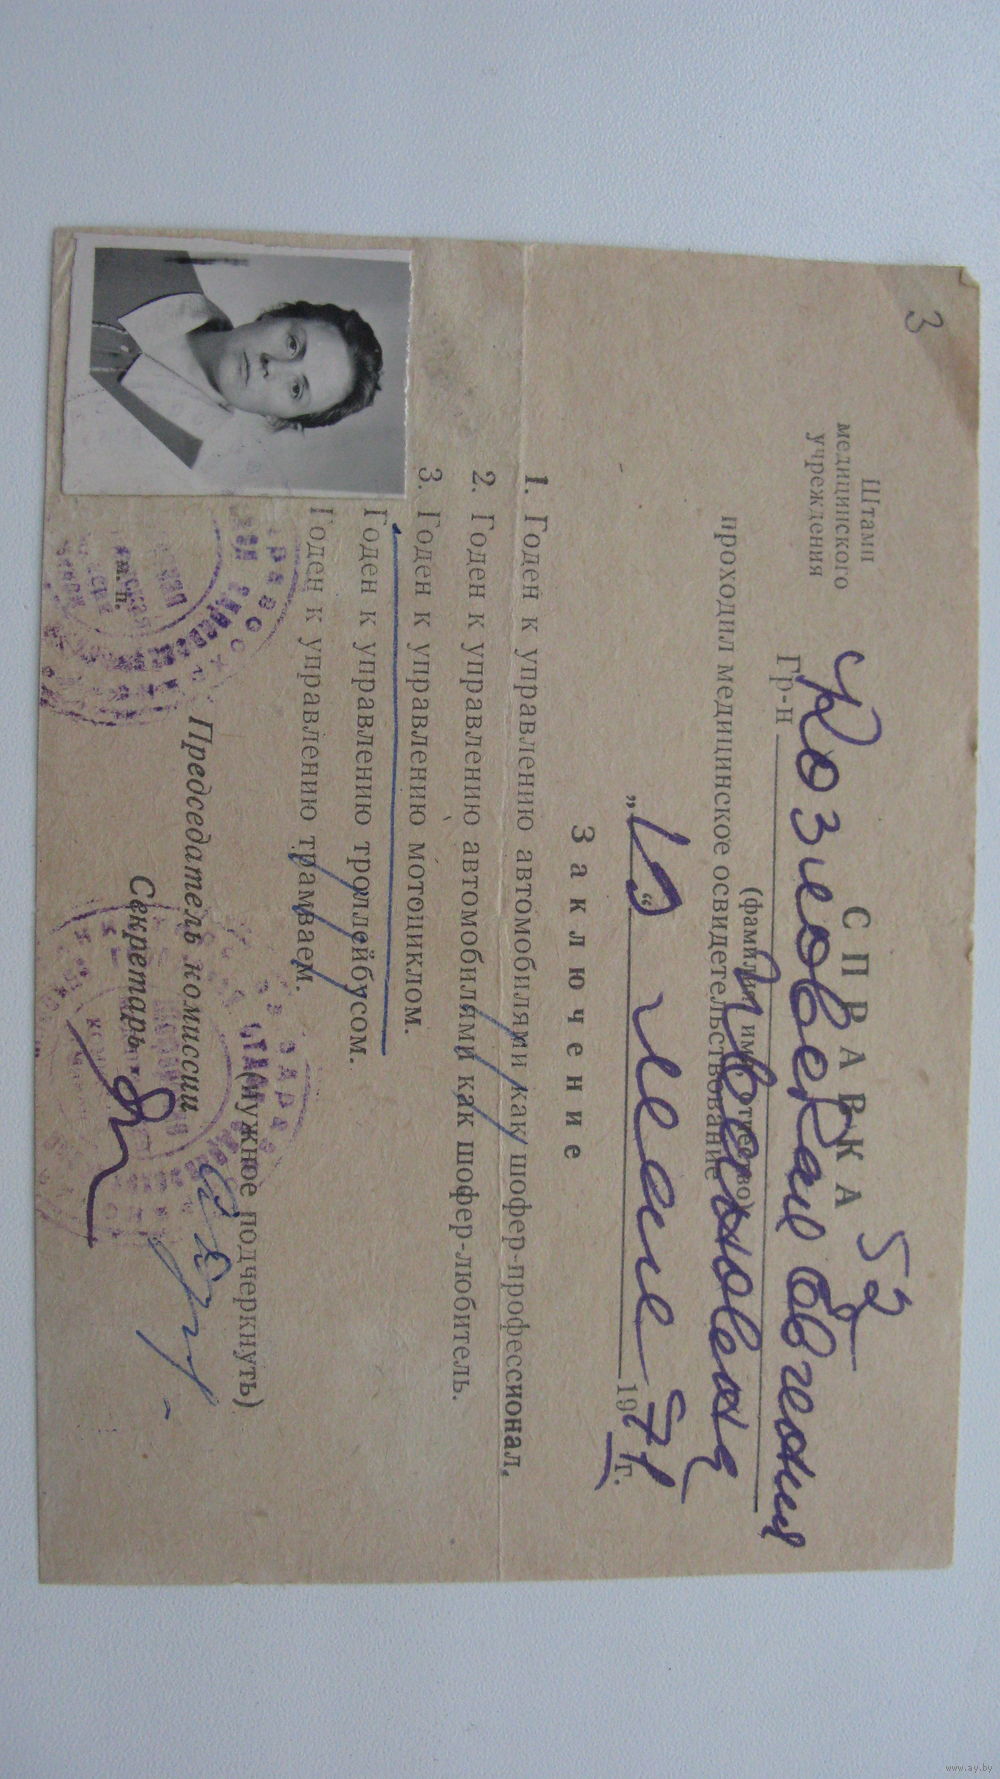 3
Штамп
медицинского
учреждения
СПРАВКА 52
Гр-н Козловская Евгения
(фамилия, имя, отчество)
Ивановена
проходил медицинское освидетельствование
„18“ мая 1971 г.
Заключение
1. Годен к управлению автомобилями как шофер-профессионал.
2. Годен к управлению автомобилями как шофер-любитель.
3. Годен к управлению мотоциклом.
Годен к управлению троллейбусом.
Годен к управлению трамваем.
(нужное подчеркнуть)
м. п.
Председатель комиссии
Секретарь
www.ay.by